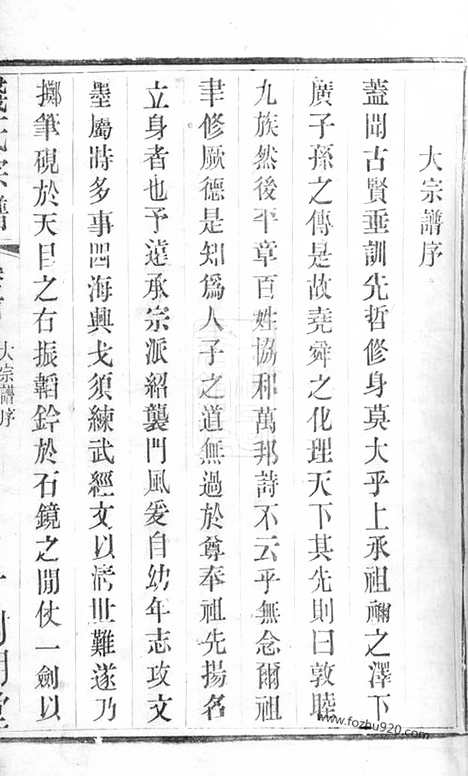 大宗譜序
蓋聞古賢垂訓先哲修身莫大乎上承祖禰之澤下
廣子孫之傳是故堯舜之化理天下其先則曰敦睦
九族然後平章百姓協和萬邦詩不云乎無念爾祖
聿修厥德是知爲人子之道無過於尊奉祖先揚名
立身者也予遠承宗派紹襲門風爰自幼年志攻文
墨屬時多事四海興戈須練武經文以濟世難遂乃
擲筆硯於天目之右振韜鈐於石鏡之閒仗一劍以
錢氏宗譜
大宗譜序
www.fozhu920.com